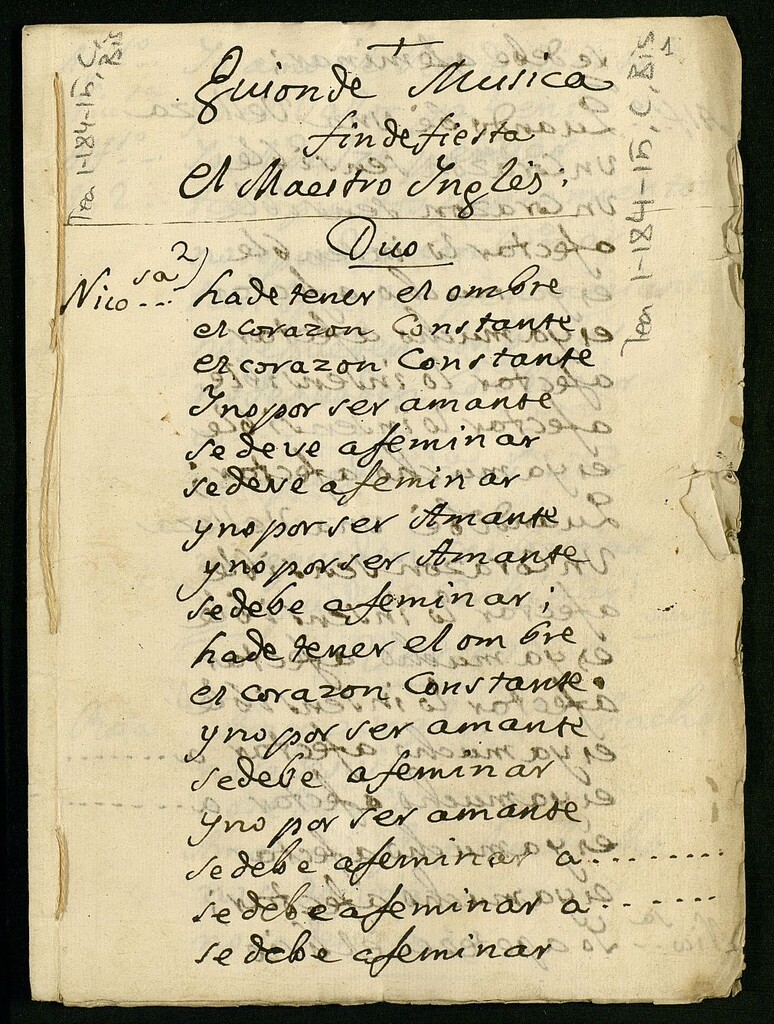 1
Tea 1-184-15, C, BIS
Tea 1-184-15, C, BIS
Guionde Musica
fin de fiesta
el Maestro Ingles;
Duo
Nico...sa 2)
hade tener el ombre
el corazon Constante
el corazon Constante
Ynopor ser amante
sedeve afeminar
sedeve afeminar
yno por ser Amante
yno por ser Amante
sedebe afeminar;
hade tener el ombre
el corazon Constante.
yno por ser amante
sedebe afeminar
yno por ser amante
sedebe afeminar a........
sedebe afeminar a.......
sedebe afeminar